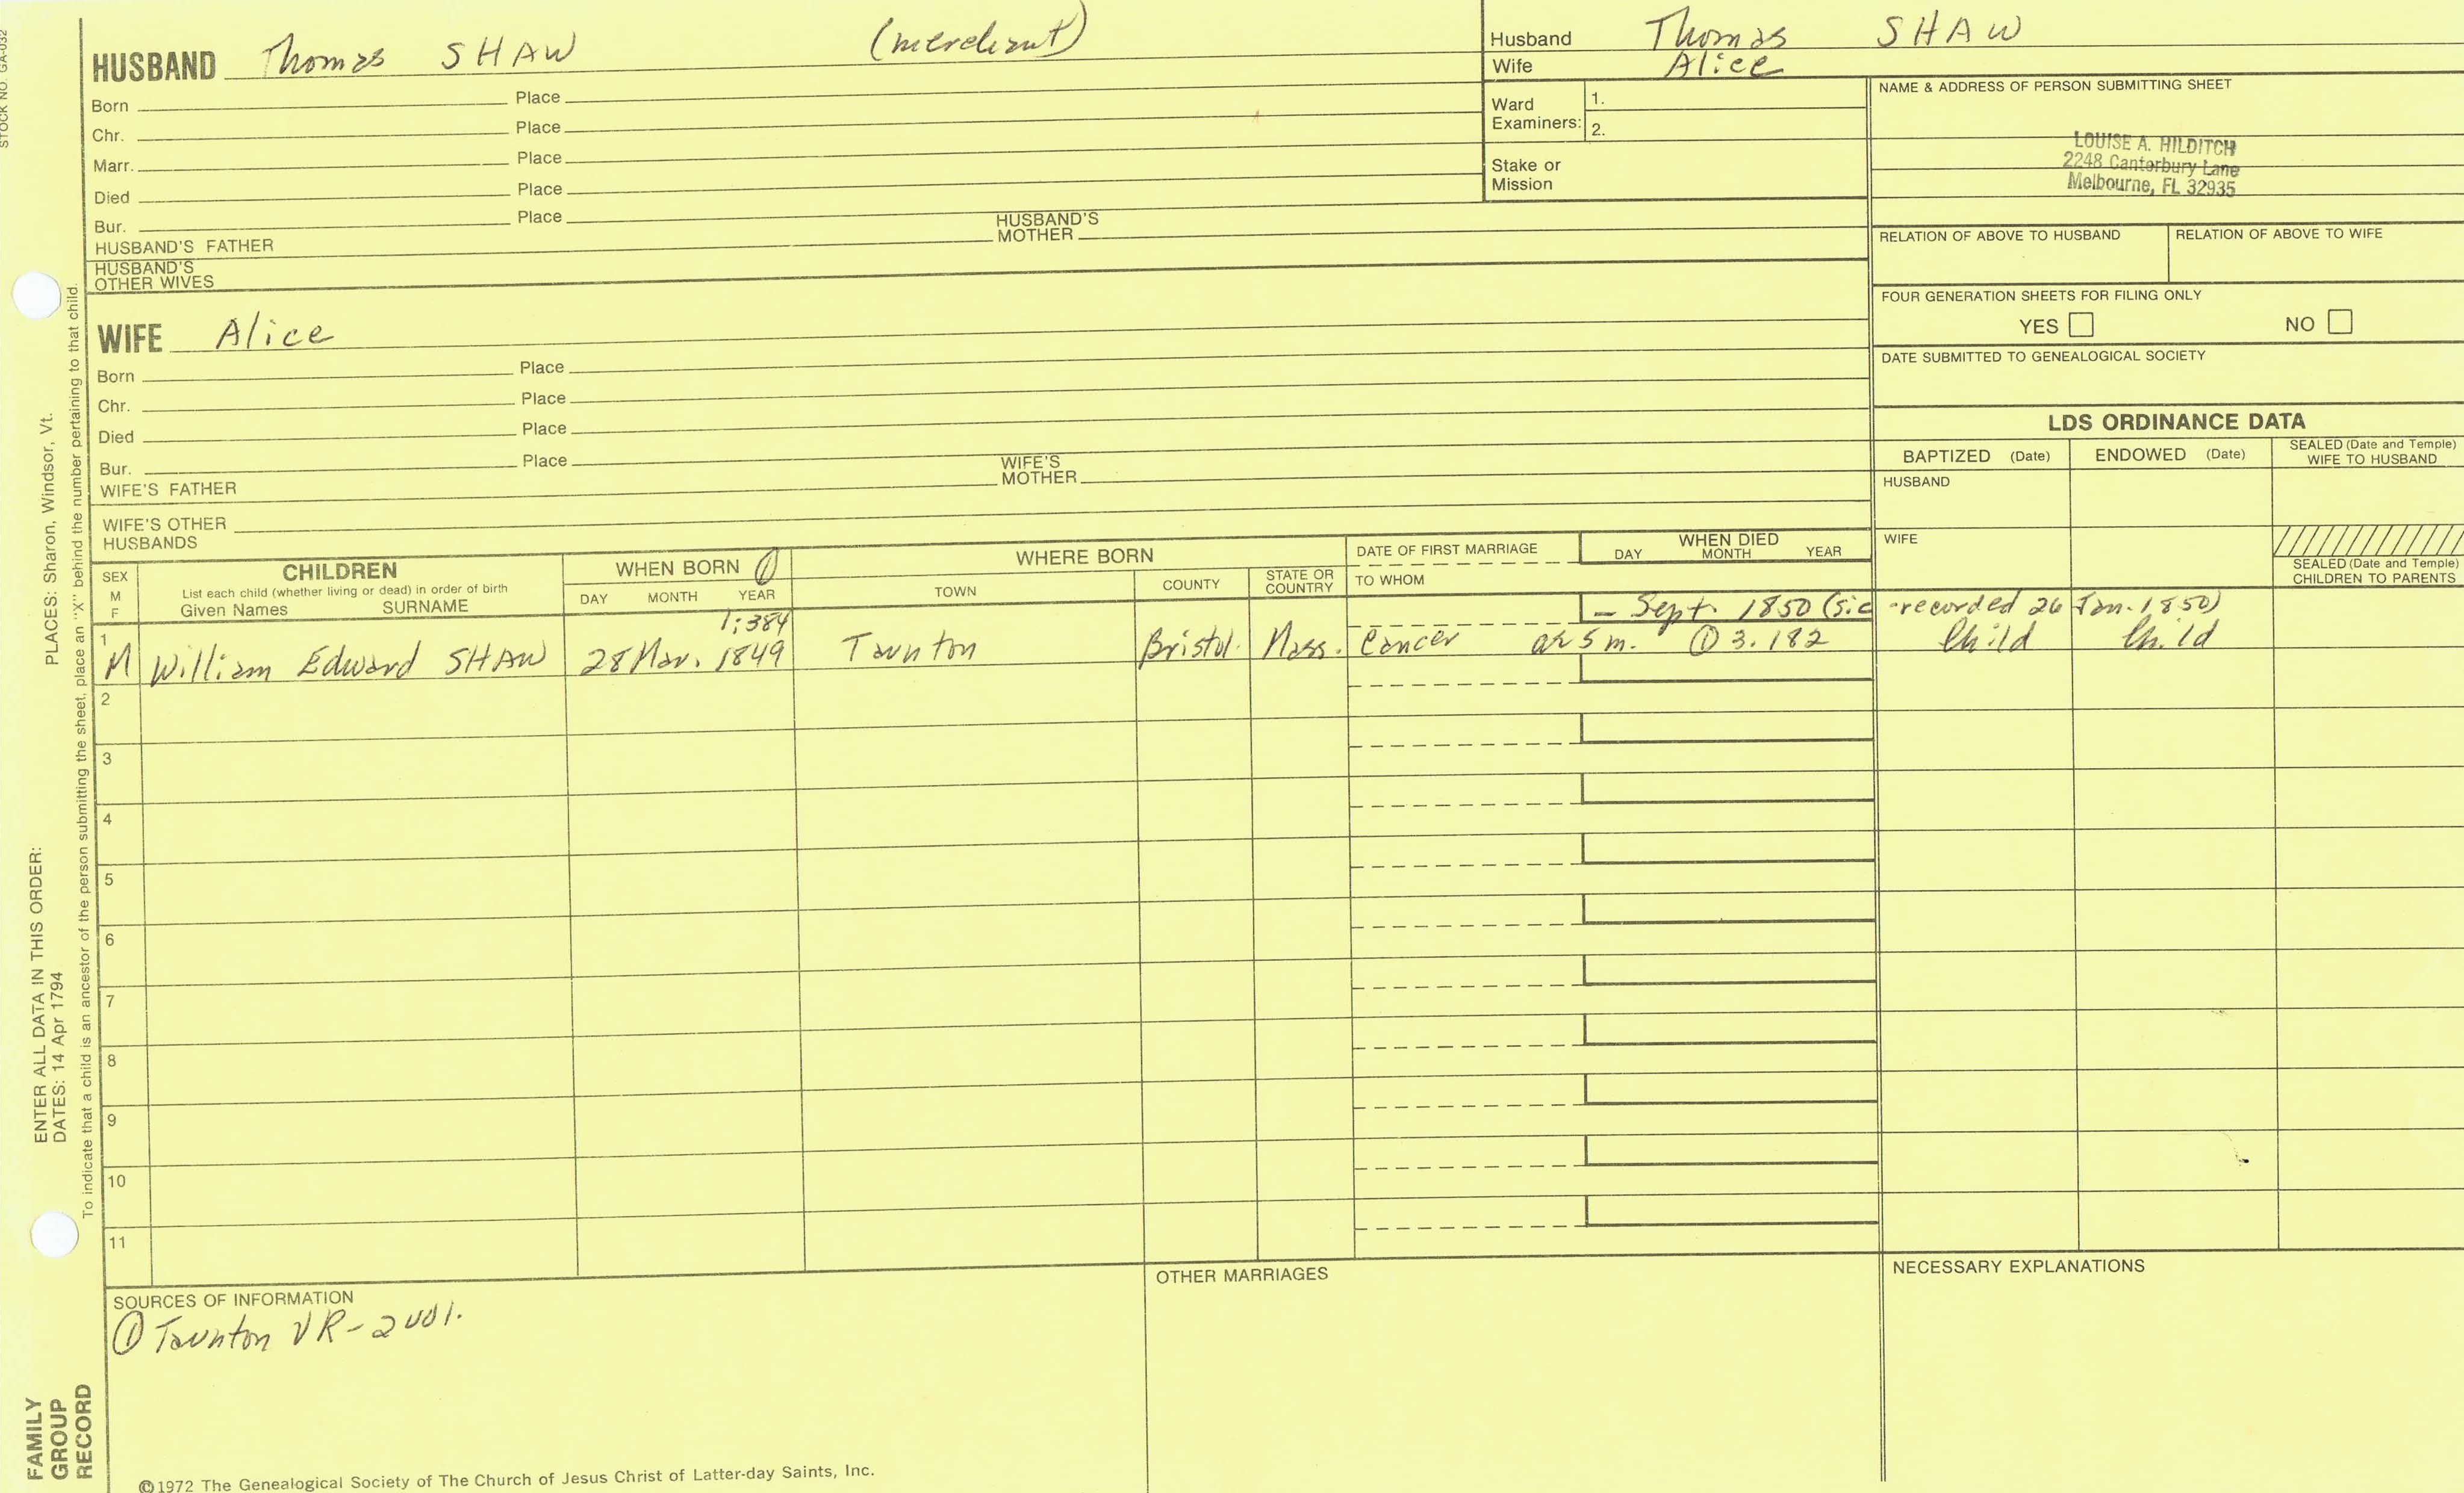 STOCK NO. GA-032
HUSBAND Thomas SHAW (merchant)
Born Place
Chr. Place
Marr. Place
Died Place
Bur. Place
HUSBAND'S FATHER HUSBAND'S MOTHER
HUSBAND'S OTHER WIVES
WIFE Alice
Born Place
Chr. Place
Died Place
Bur. Place
WIFE'S FATHER WIFE'S MOTHER
WIFE'S OTHER HUSBANDS
Husband Thomas SHAW
Wife Alice
Ward Examiners: 1.
2.
Stake or Mission
NAME & ADDRESS OF PERSON SUBMITTING SHEET
LOUISE A. HILDITCH
2248 Canterbury Lane
Melbourne, FL 32935
RELATION OF ABOVE TO HUSBAND RELATION OF ABOVE TO WIFE
FOUR GENERATION SHEETS FOR FILING ONLY
YES NO
DATE SUBMITTED TO GENEALOGICAL SOCIETY
LDS ORDINANCE DATA
BAPTIZED (Date) ENDOWED (Date) SEALED (Date and Temple) WIFE TO HUSBAND
HUSBAND
WIFE
SEALED (Date and Temple) CHILDREN TO PARENTS
SEX M F
CHILDREN
List each child (whether living or dead) in order of birth
Given Names SURNAME
WHEN BORN ①
DAY MONTH YEAR
WHERE BORN
TOWN COUNTY STATE OR COUNTRY
DATE OF FIRST MARRIAGE
TO WHOM
WHEN DIED
DAY MONTH YEAR
1:384 – Sept. 1850 (sic - recorded 26 Jan. 1850)
1 M William Edward SHAW 28 Mar. 1849 Taunton Bristol. Mass. Cancer ae 5 m. ① 3.182 Child Child
2
3
4
5
6
7
8
9
10
11
SOURCES OF INFORMATION
① Taunton VR - 2 vol.
OTHER MARRIAGES
NECESSARY EXPLANATIONS
©1972 The Genealogical Society of The Church of Jesus Christ of Latter-day Saints, Inc.
FAMILY GROUP RECORD
ENTER ALL DATA IN THIS ORDER:
DATES: 14 Apr 1794
PLACES: Sharon, Windsor, Vt.
To indicate that a child is an ancestor of the person submitting the sheet, place an "X" behind the number pertaining to that child.